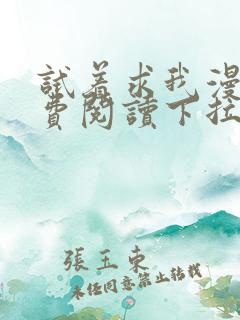 試着求我漫
費閱讀下拉
張玉東
未经同意禁止转载